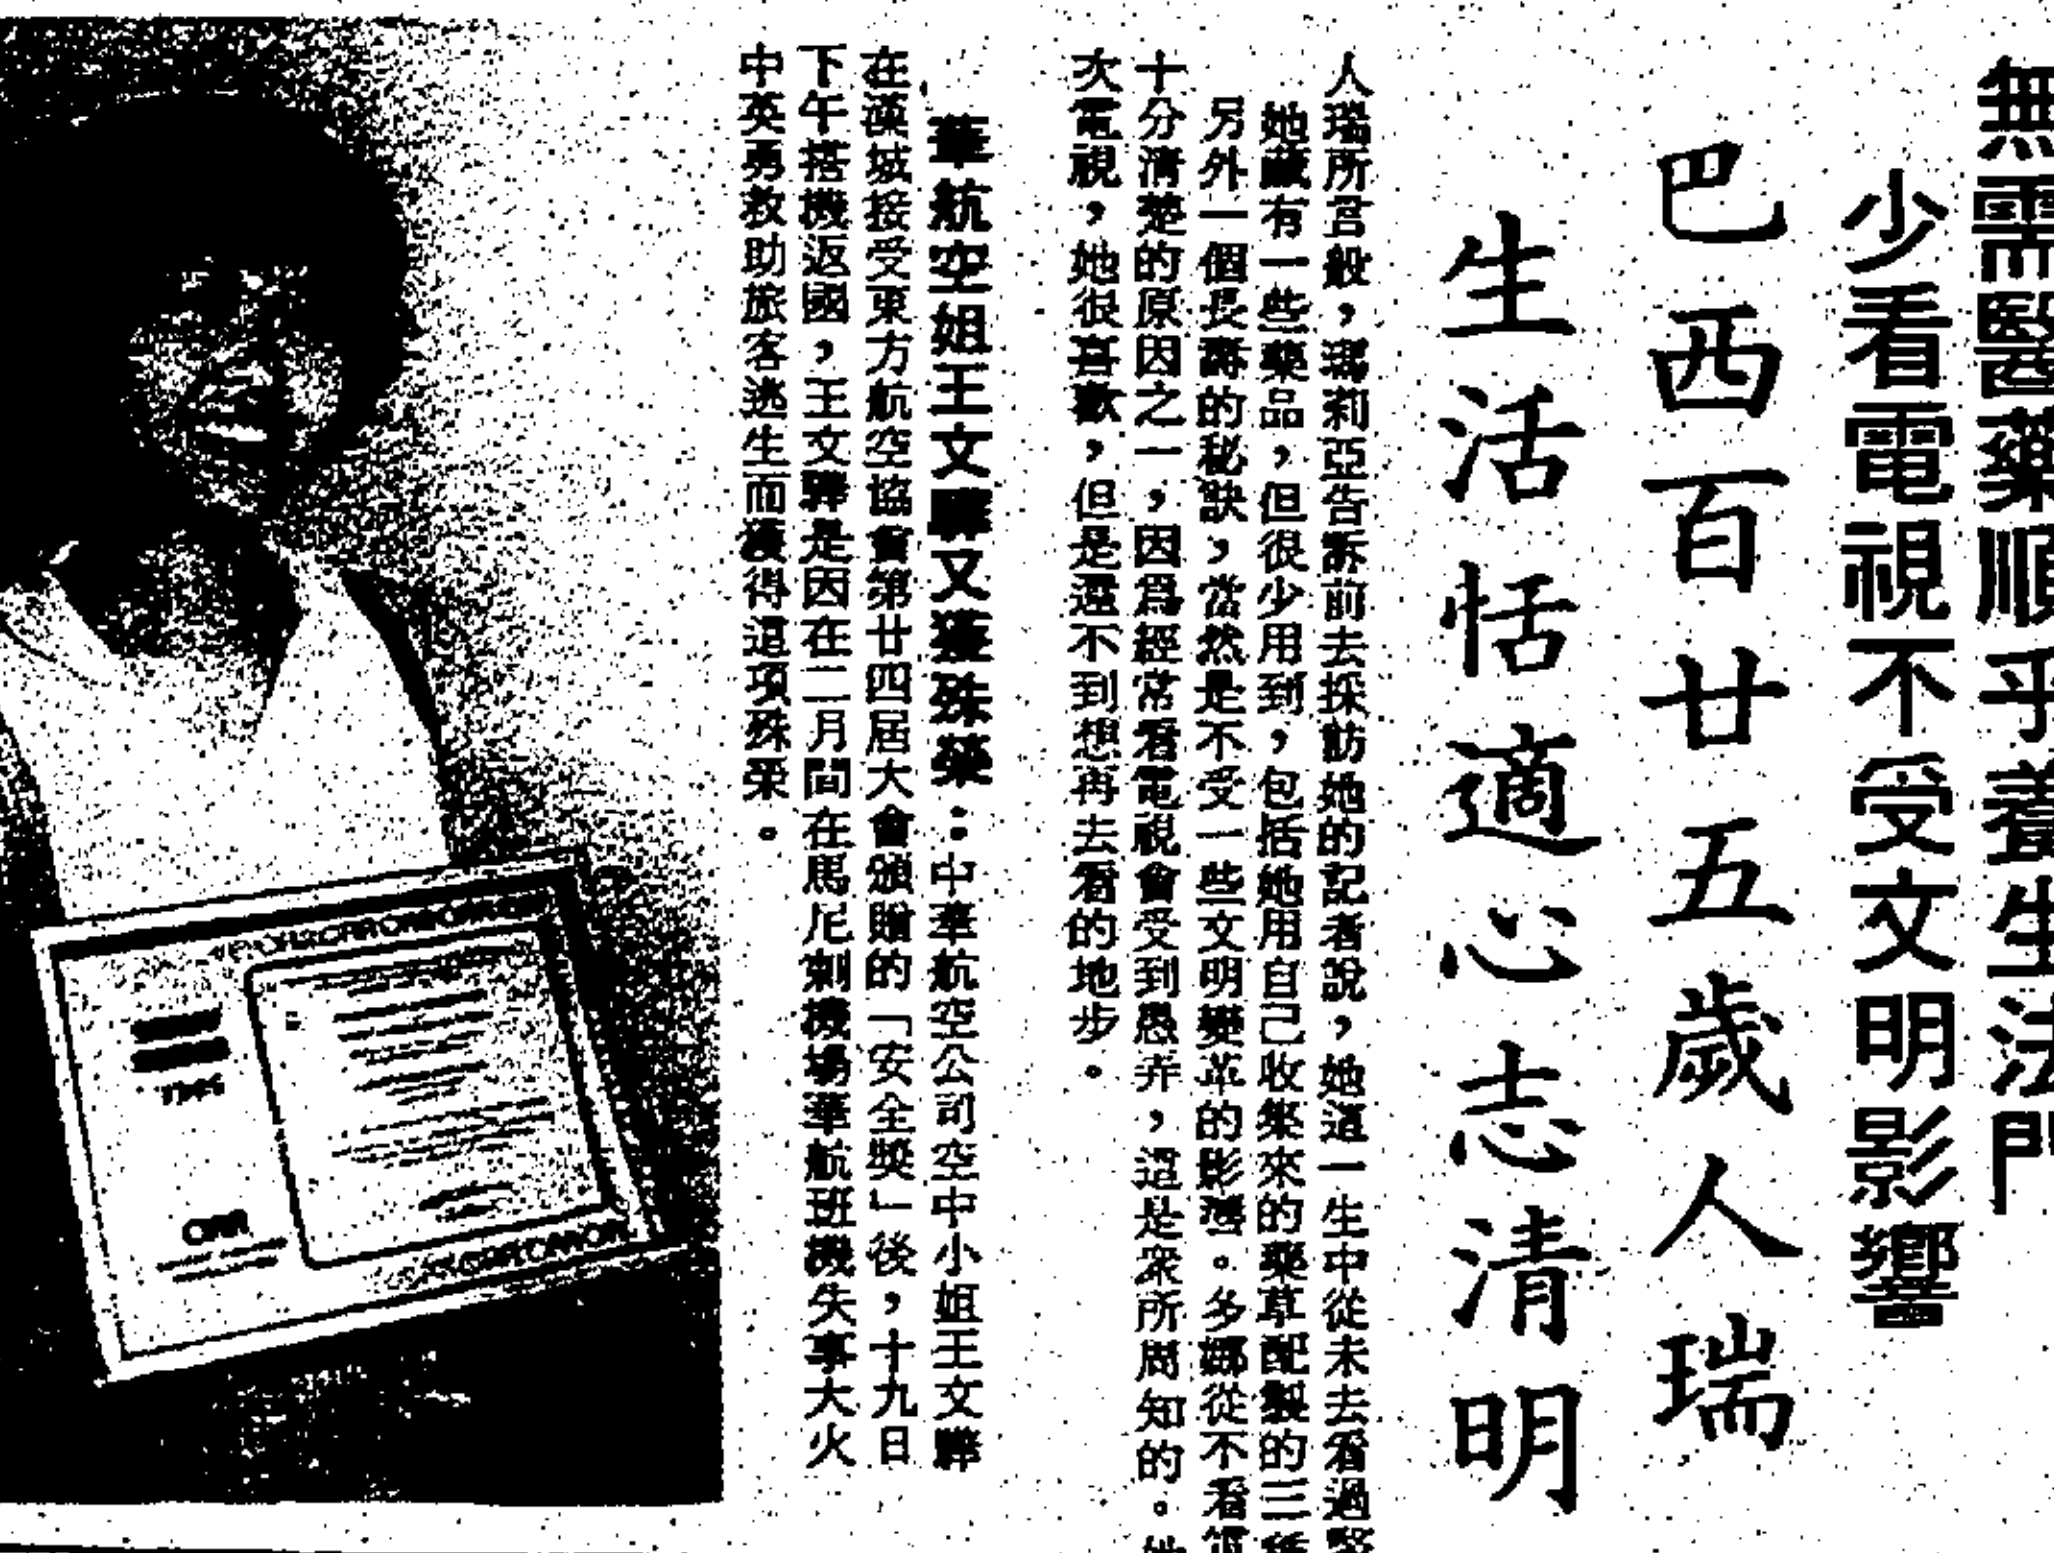 無需醫藥順乎養生法門
少看電視不受文明影響
巴西百廿五歲人瑞
生活恬適心志清明
人瑞所言般，瑪莉亞告訴前去採訪她的記者說，她這一生中從未去看過醫
她藏有一些藥品，但很少用到，包括她用自己收集來的藥草配製的三種
另外一個長壽的秘訣，當然是不受一些文明變革的影響。多娜從不看電
十分清楚的原因之一，因為經常看電視會受到愚弄，這是衆所周知的。她
次電視，她很喜歡，但是還不到想再去看的地步。
華航空姐王文驊又獲殊榮：中華航空公司空中小姐王文驊
在漢城接受東方航空協會第廿四屆大會頒贈的「安全獎」後，十九日
下午搭機返國，王文驊是因在二月間在馬尼剌機場華航班機失事大火
中英勇救助旅客逃生而獲得這項殊榮。